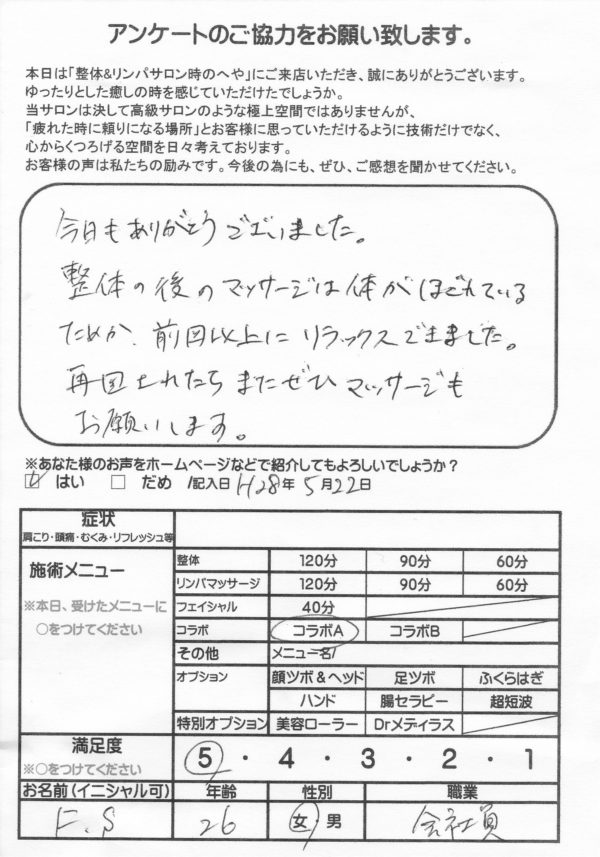 アンケートのご協力をお願い致します。
本日は「整体&リンパサロン時のへや」にご来店いただき、誠にありがとうございます。
ゆったりとした癒しの時を感じていただけたでしょうか。
当サロンは決して高級サロンのような極上空間ではありませんが、
「疲れた時に頼りになる場所」とお客様に思っていただけるように技術だけでなく、
心からくつろげる空間を日々考えております。
お客様の声は私たちの励みです。今後の為にも、ぜひ、ご感想を聞かせてください。
今日もありがとうございました。
整体の後のマッサージは体がほぐれている
ためか、前回以上にリラックスできました。
再回されたらまたぜひマッサージも
お願いします。
※あなた様のお声をホームページなどで紹介してもよろしいでしょうか?
はい □ だめ /記入日 H28年 5月22日
症状
肩こり・頭痛・むくみ・リフレッシュ等
施術メニュー
※本日、受けたメニューに
○をつけてください
整体 120分 90分 60分
リンパマッサージ 120分 90分 60分
フェイシャル 40分
コラボ コラボA コラボB
その他 メニュー名/
オプション 顔ツボ&ヘッド 足ツボ ふくらはぎ
ハンド 腸セラピー 超短波
特別オプション 美容ローラー Drメディラス
満足度
※○をつけてください
5・4・3・2・1
お名前(イニシャル可) 年齢 性別 職業
F.S 26 女・男 会社員